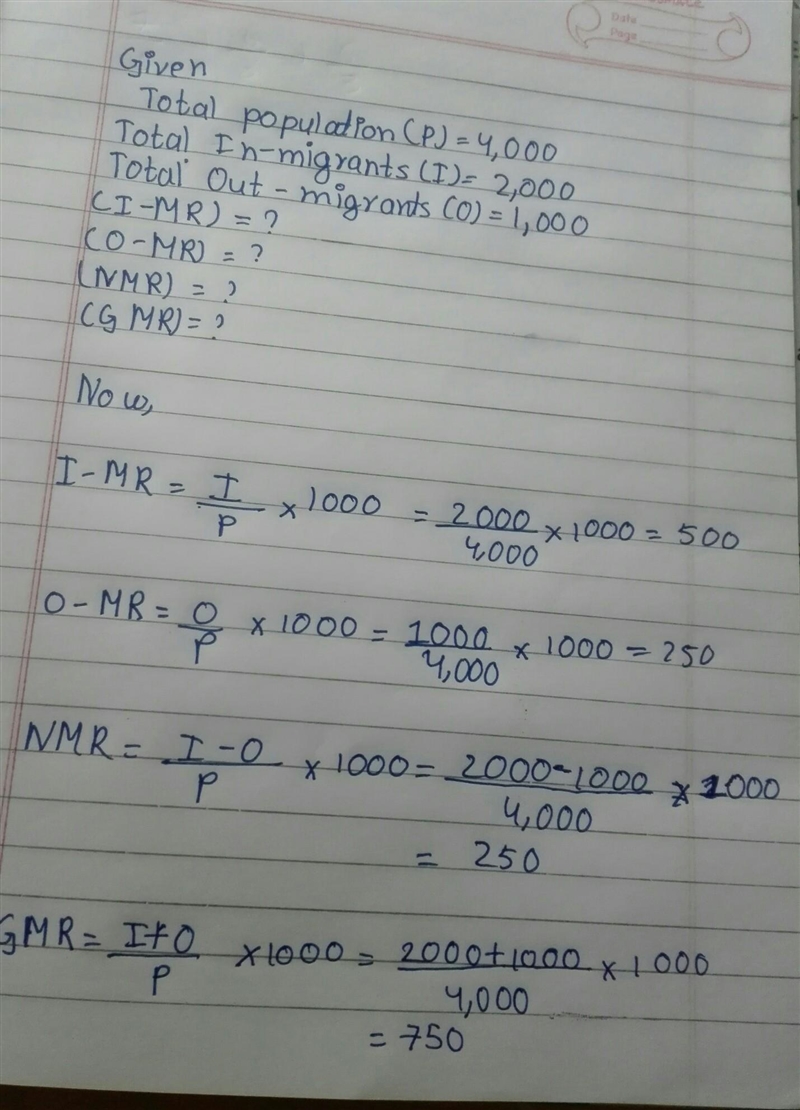 Date
Page
Given
Total population (P) = 4,000
Total In-migrants (I) = 2,000
Total Out-migrants (O) = 1,000
(I-MR) = ?
(O-MR) = ?
(NMR) = ?
(GMR) = ?
Now,
I-MR = I/P × 1000 = 2000/4,000 × 1000 = 500
O-MR = O/P × 1000 = 1000/4,000 × 1000 = 250
NMR = I-O/P × 1000 = 2000-1000/4,000 × 1000
= 250
GMR = I+O/P × 1000 = 2000+1000/4,000 × 1000
= 750